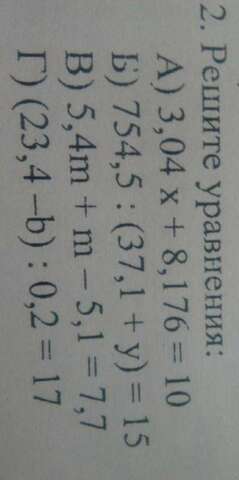 2. Решите уравнения:
А) 3,04 x + 8,176 = 10
Б) 754,5 : (37,1 + y) = 15
В) 5,4m + m – 5,1 = 7,7
Г) (23,4 –b) : 0,2 = 17